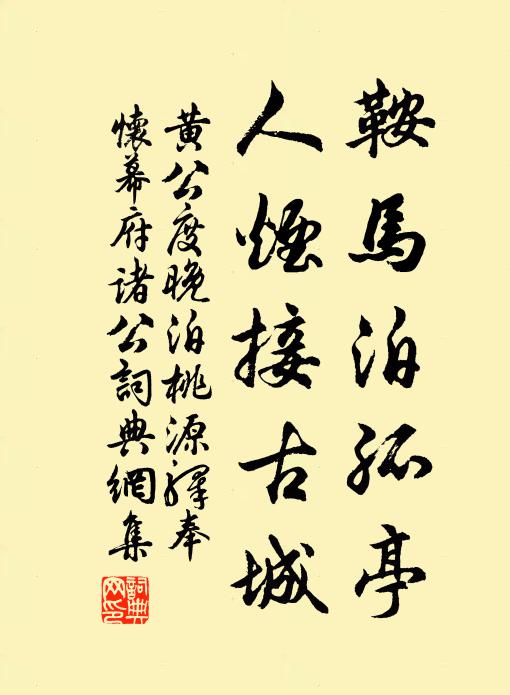 鞍馬泊孤亭
人煙接古城
黄公度晚泊桃源驛奉
懷幕府諸公詞典網集
詞典網印